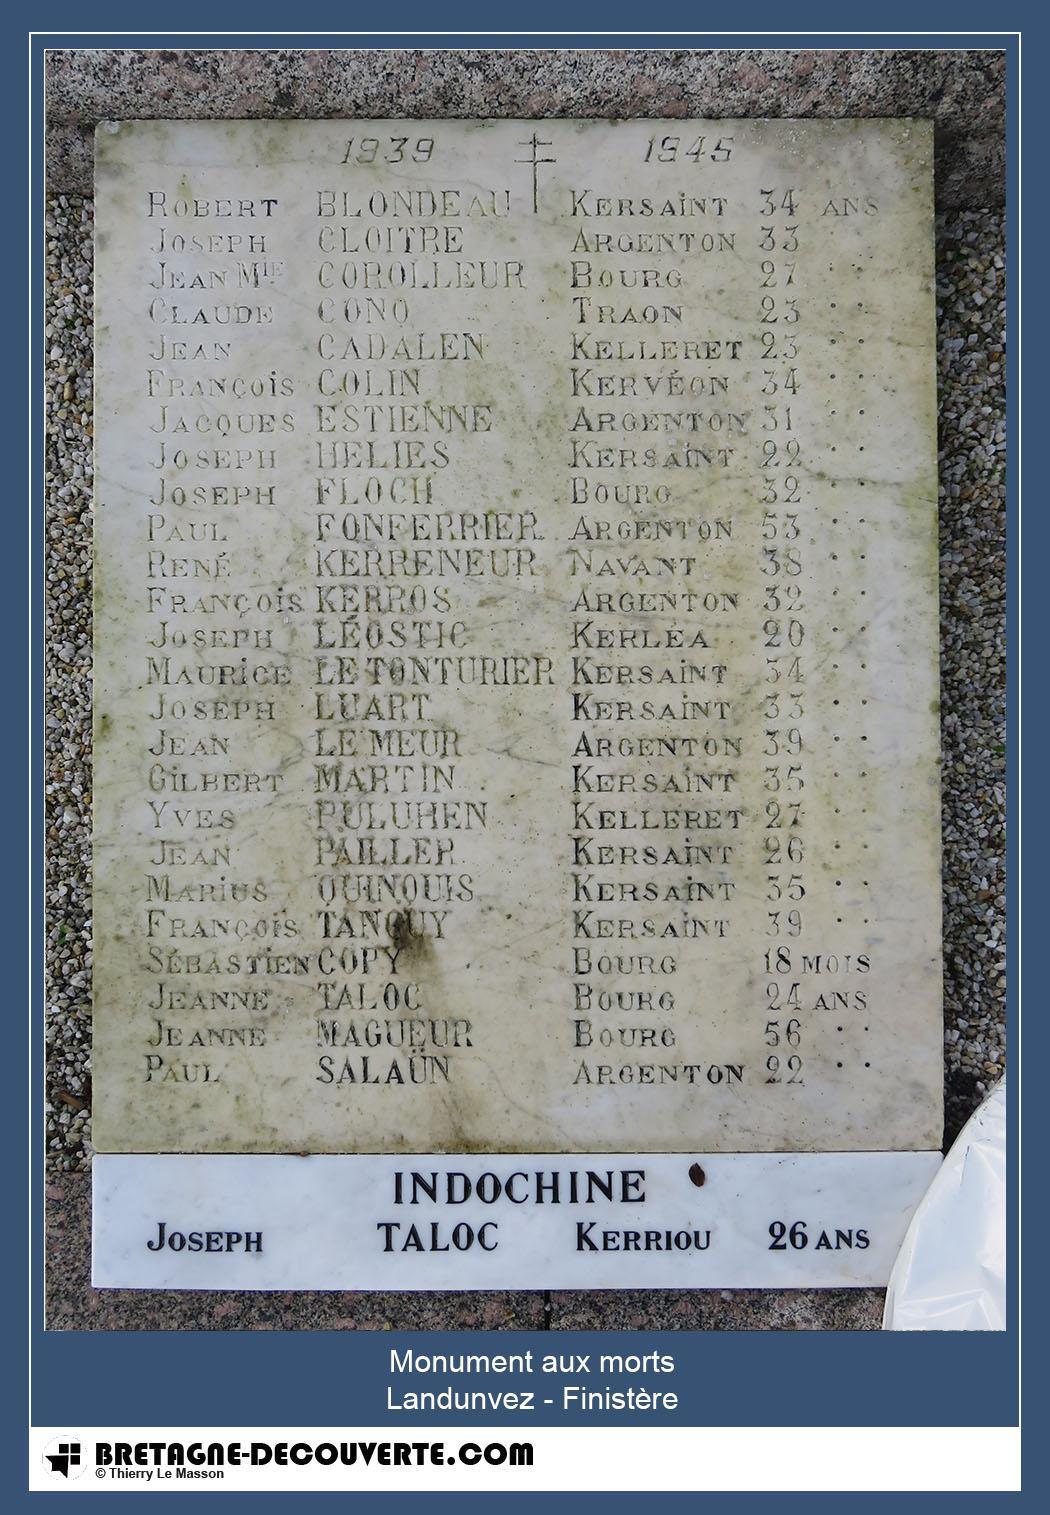 1939 1945
ROBERT BLONDEAU KERSAiNT 34 ANS
JOSEPH CLOITRE ARGENTON 33 " "
JEAN MIE COROLLEUR BOURG 27 " "
CLAUDE CONQ TRAON 23 " "
JEAN CADALEN KELLERET 23 " "
FRANÇOiS COLIN KERVÉON 34 " "
JACQUES ESTIENNE ARGENTON 31 " "
JOSEPH HELIES KERSAiNT 22 " "
JOSEPH FLOCH BOURG 32 " "
PAUL FONFERRIER ARGENTON 53 " "
RENÉ KERRENEUR NAVANT 38 " "
FRANÇOiS KERROS ARGENTON 32 " "
JOSEPH LÉOSTIC KERLÉA 20 " "
MAURiCE LE TONTURIER KERSAiNT 34 " "
JOSEPH LUART KERSAiNT 33 " "
JEAN LE MEUR ARGENTON 39 " "
GiLBERT MARTIN KERSAiNT 35 " "
YVES PULUHEN KELLERET 27 " "
JEAN PAILLER KERSAiNT 26 " "
MARiUS QUINQUIS KERSAiNT 35 " "
FRANÇOiS TANGUY KERSAiNT 39 " "
SÉBASTiEN COPY BOURG 18 MOIS
JEANNE TALOC BOURG 24 ANS
JEANNE MAGUEUR BOURG 56 " "
PAUL SALAÜN ARGENTON 22 " "
INDOCHINE
JOSEPH TALOC KERRIOU 26 ANS
Monument aux morts
Landunvez - Finistère
BRETAGNE-DECOUVERTE.COM
© Thierry Le Masson